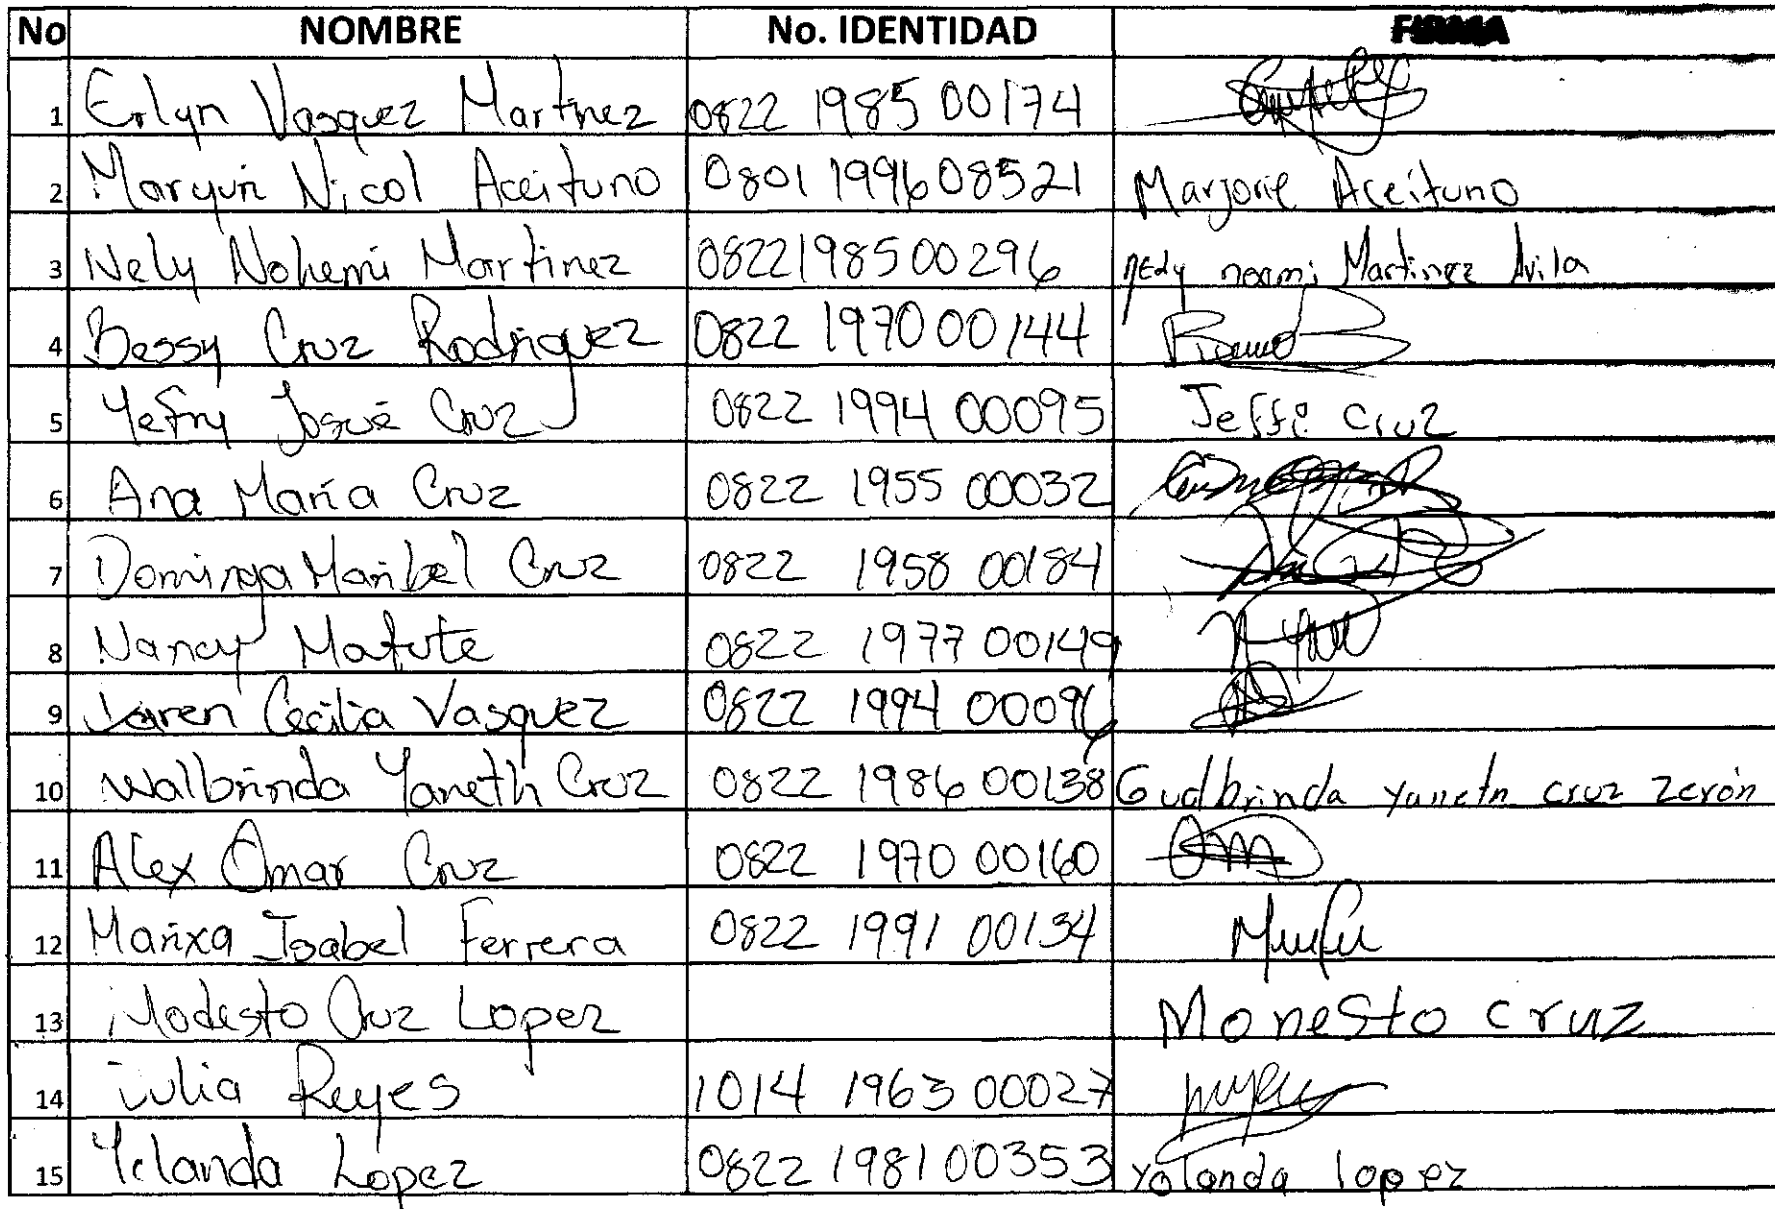 No NOMBRE No. IDENTIDAD FIRMA
1 Erlyn Vasquez Martinez 0822 1985 00174
2 Maryuri Nicol Aceituno 0801 1996 08521 Marjorie Aceituno
3 Nely Nohemi Martinez 0822 1985 00296 noemi Martinez Avila
4 Bessy Cruz Rodriguez 0822 1970 00144
5 Yefry Josué Cruz 0822 1994 00095 Jeffi Cruz
6 Ana María Cruz 0822 1955 00032
7 Dominga Maribel Cruz 0822 1958 00184
8 Nancy Matute 0822 1977 00149
9 Cecilia Vasquez 0822 1994 00096
10 Walbrinda Yaneth Cruz 0822 1986 00138 Gualbrinda yaneth cruz zerón
11 Alex Omar Cruz 0822 1970 00160
12 Marixa Isabel Ferrera 0822 1991 00134
13 Modesto Cruz Lopez Monesto cruz
14 Julia Reyes 1014 1963 00027
15 Yolanda Lopez 0822 1981 00353 yolanda lopez